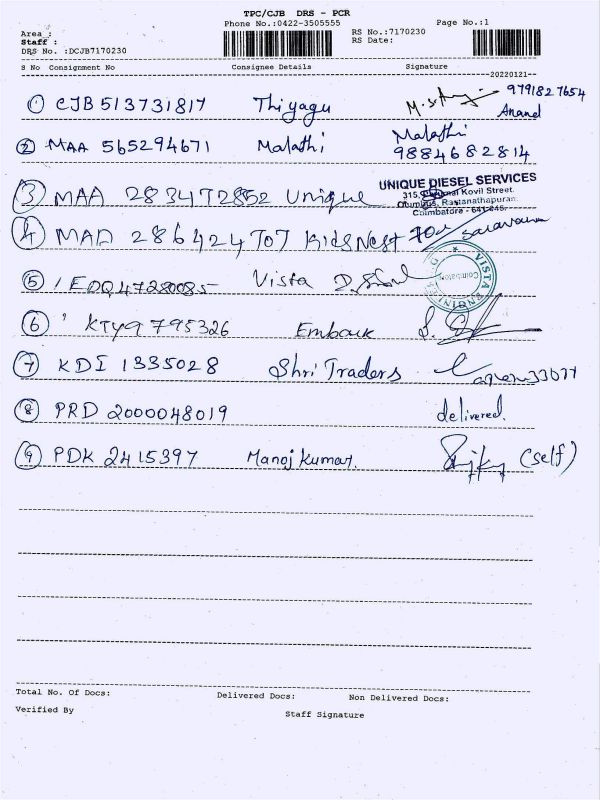 TPC/CJB DRS - PCR
Phone No.:0422-3505555 Page No.:1
Area :
Staff :
DRS No. :DCJB7170230
RS No.:7170230
RS Date:
S No Consignment No Consignee Details Signature
--20220121--
1 CJB 513731817 Thiyagu 9791827654
Anand
2 MAA 565294671 Malathi Malathi
9884682814
3 MAA 283472852 Unique
UNIQUE DIESEL SERVICES
Kovil Street.
Rastanathapuran.
Coimbatore - 641 045.
4 MAD 286424707 Kids Nest Saravana
5 EDQ47280085 Vista
VISTA Coimbatore
6 KTY9795326 Embark
7 KDI 1335028 Shri Traders
8 PRD 2000048019 delivered.
9 PDK 2415397 Manoj kumar. (self)
Total No. Of Docs: Delivered Docs: Non Delivered Docs:
Verified By Staff Signature